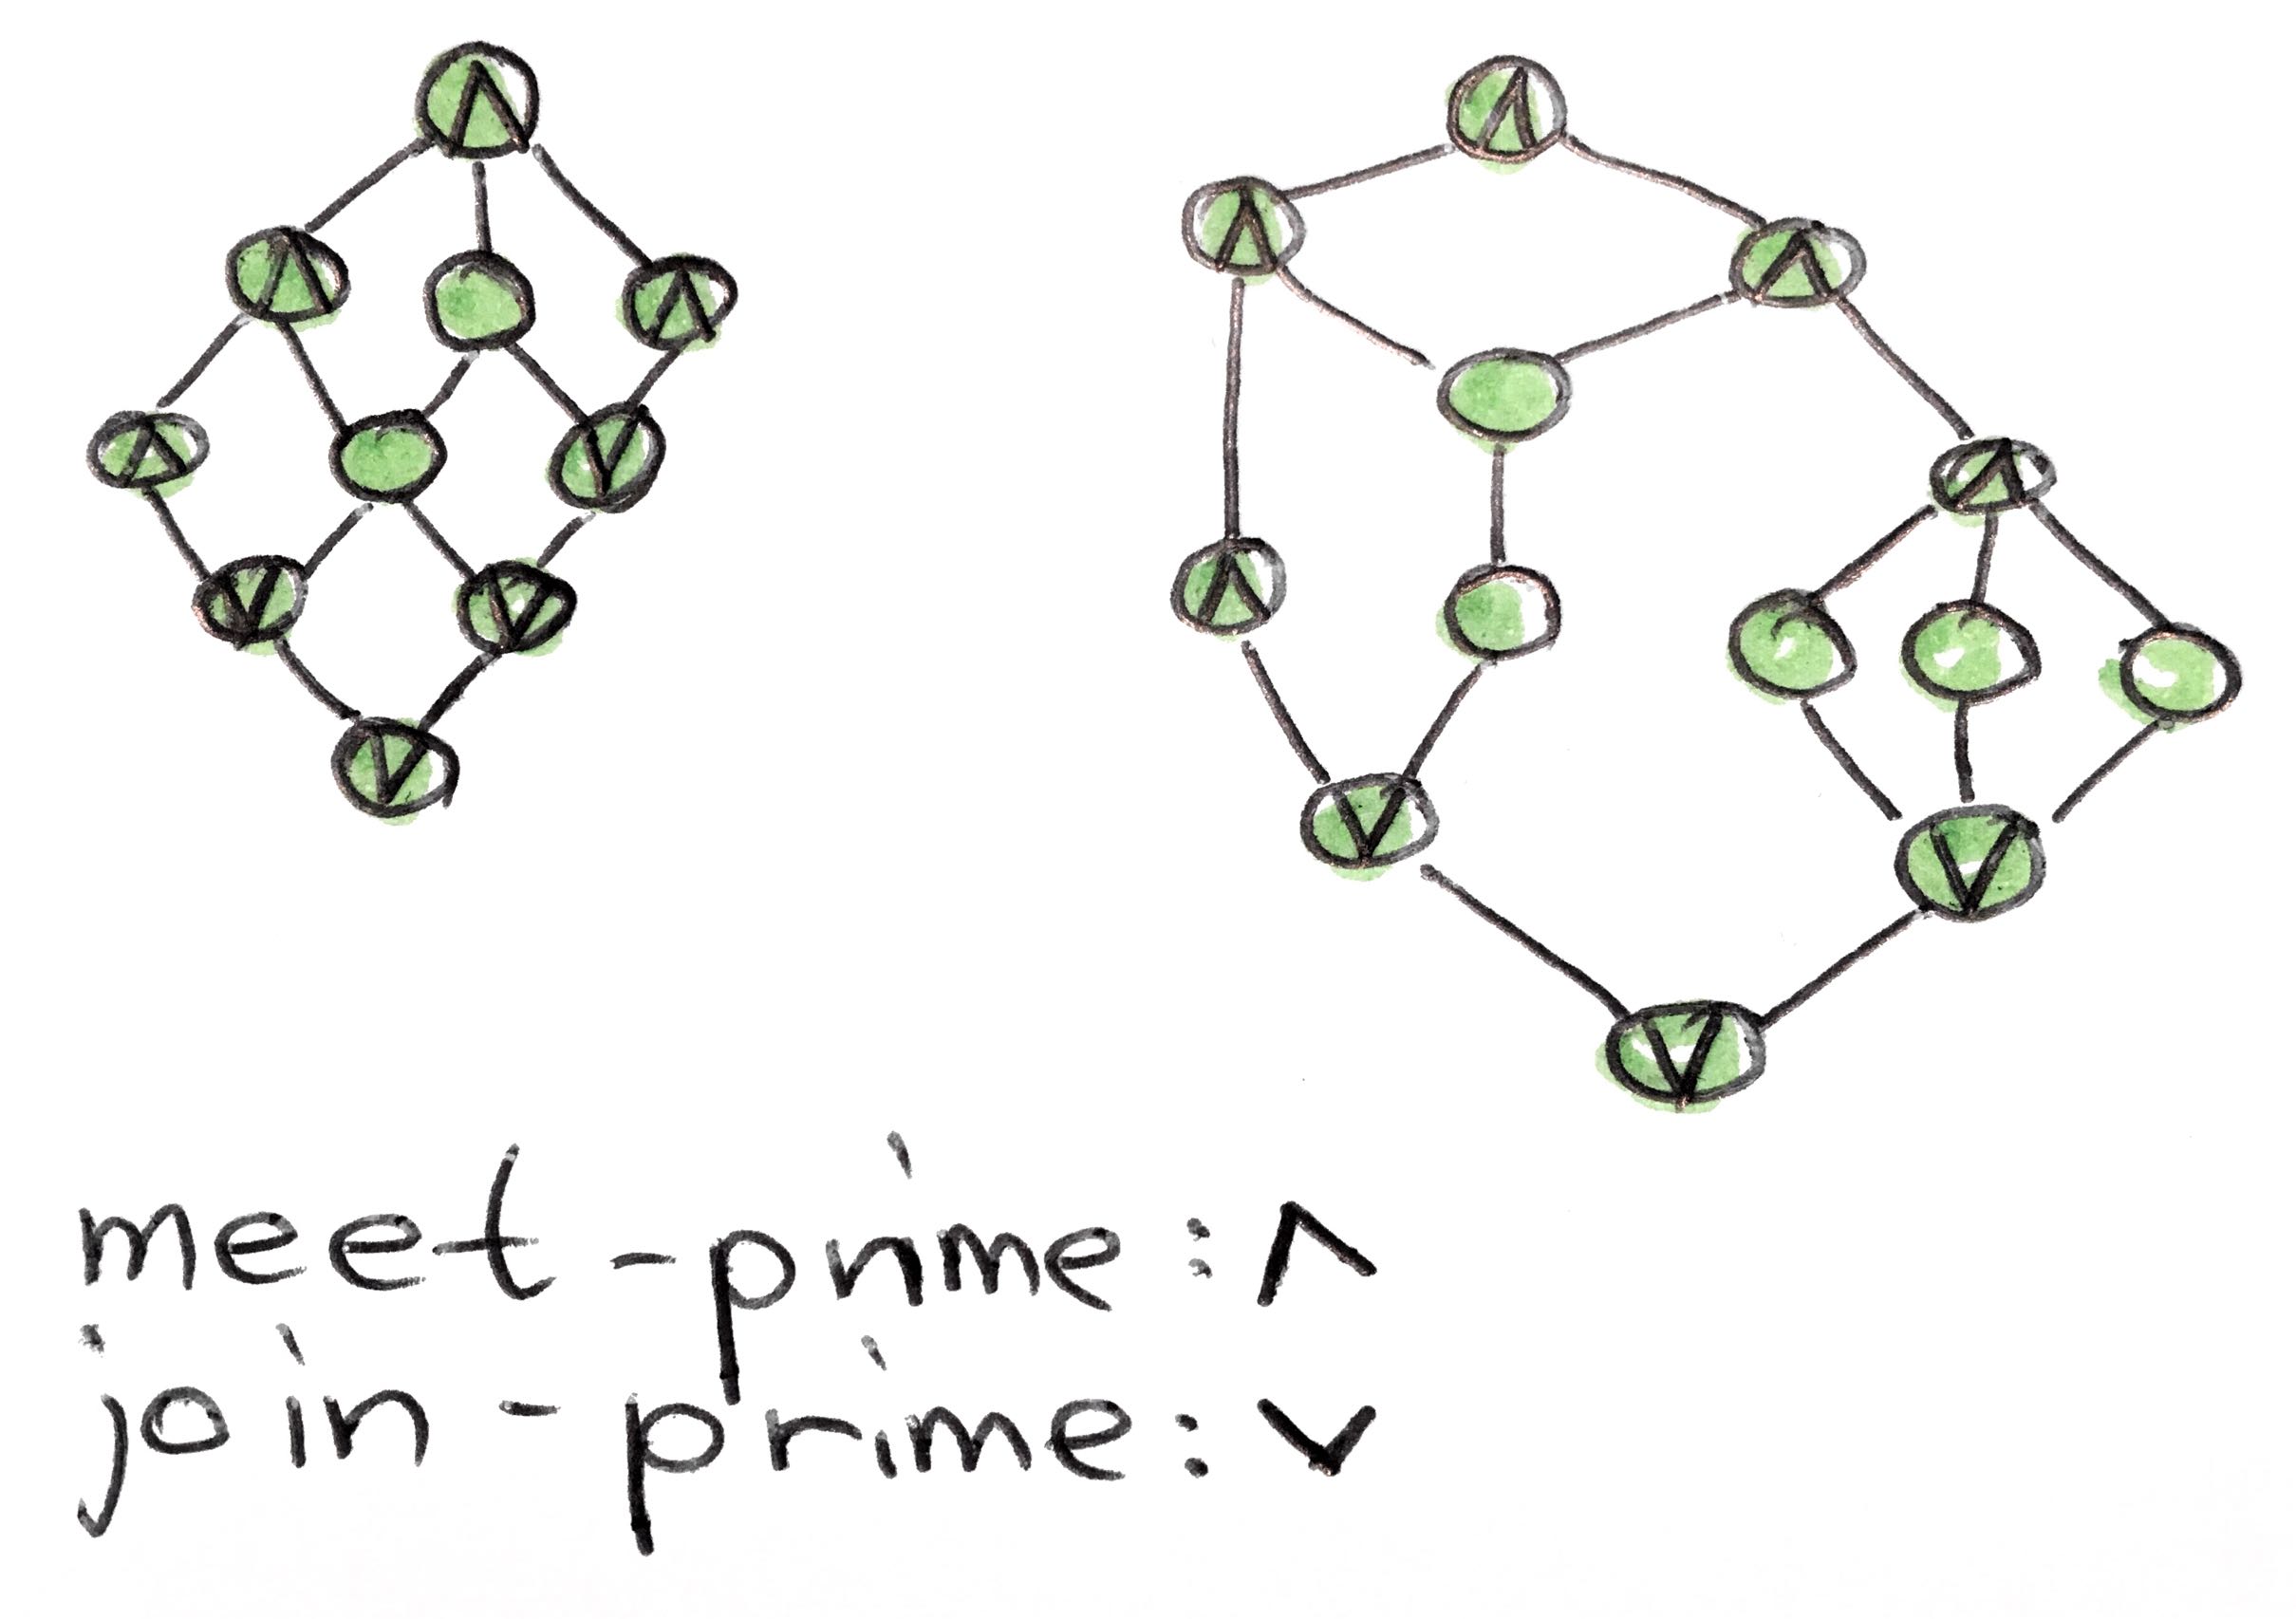 meet-prime: ∧
join-prime: ∨